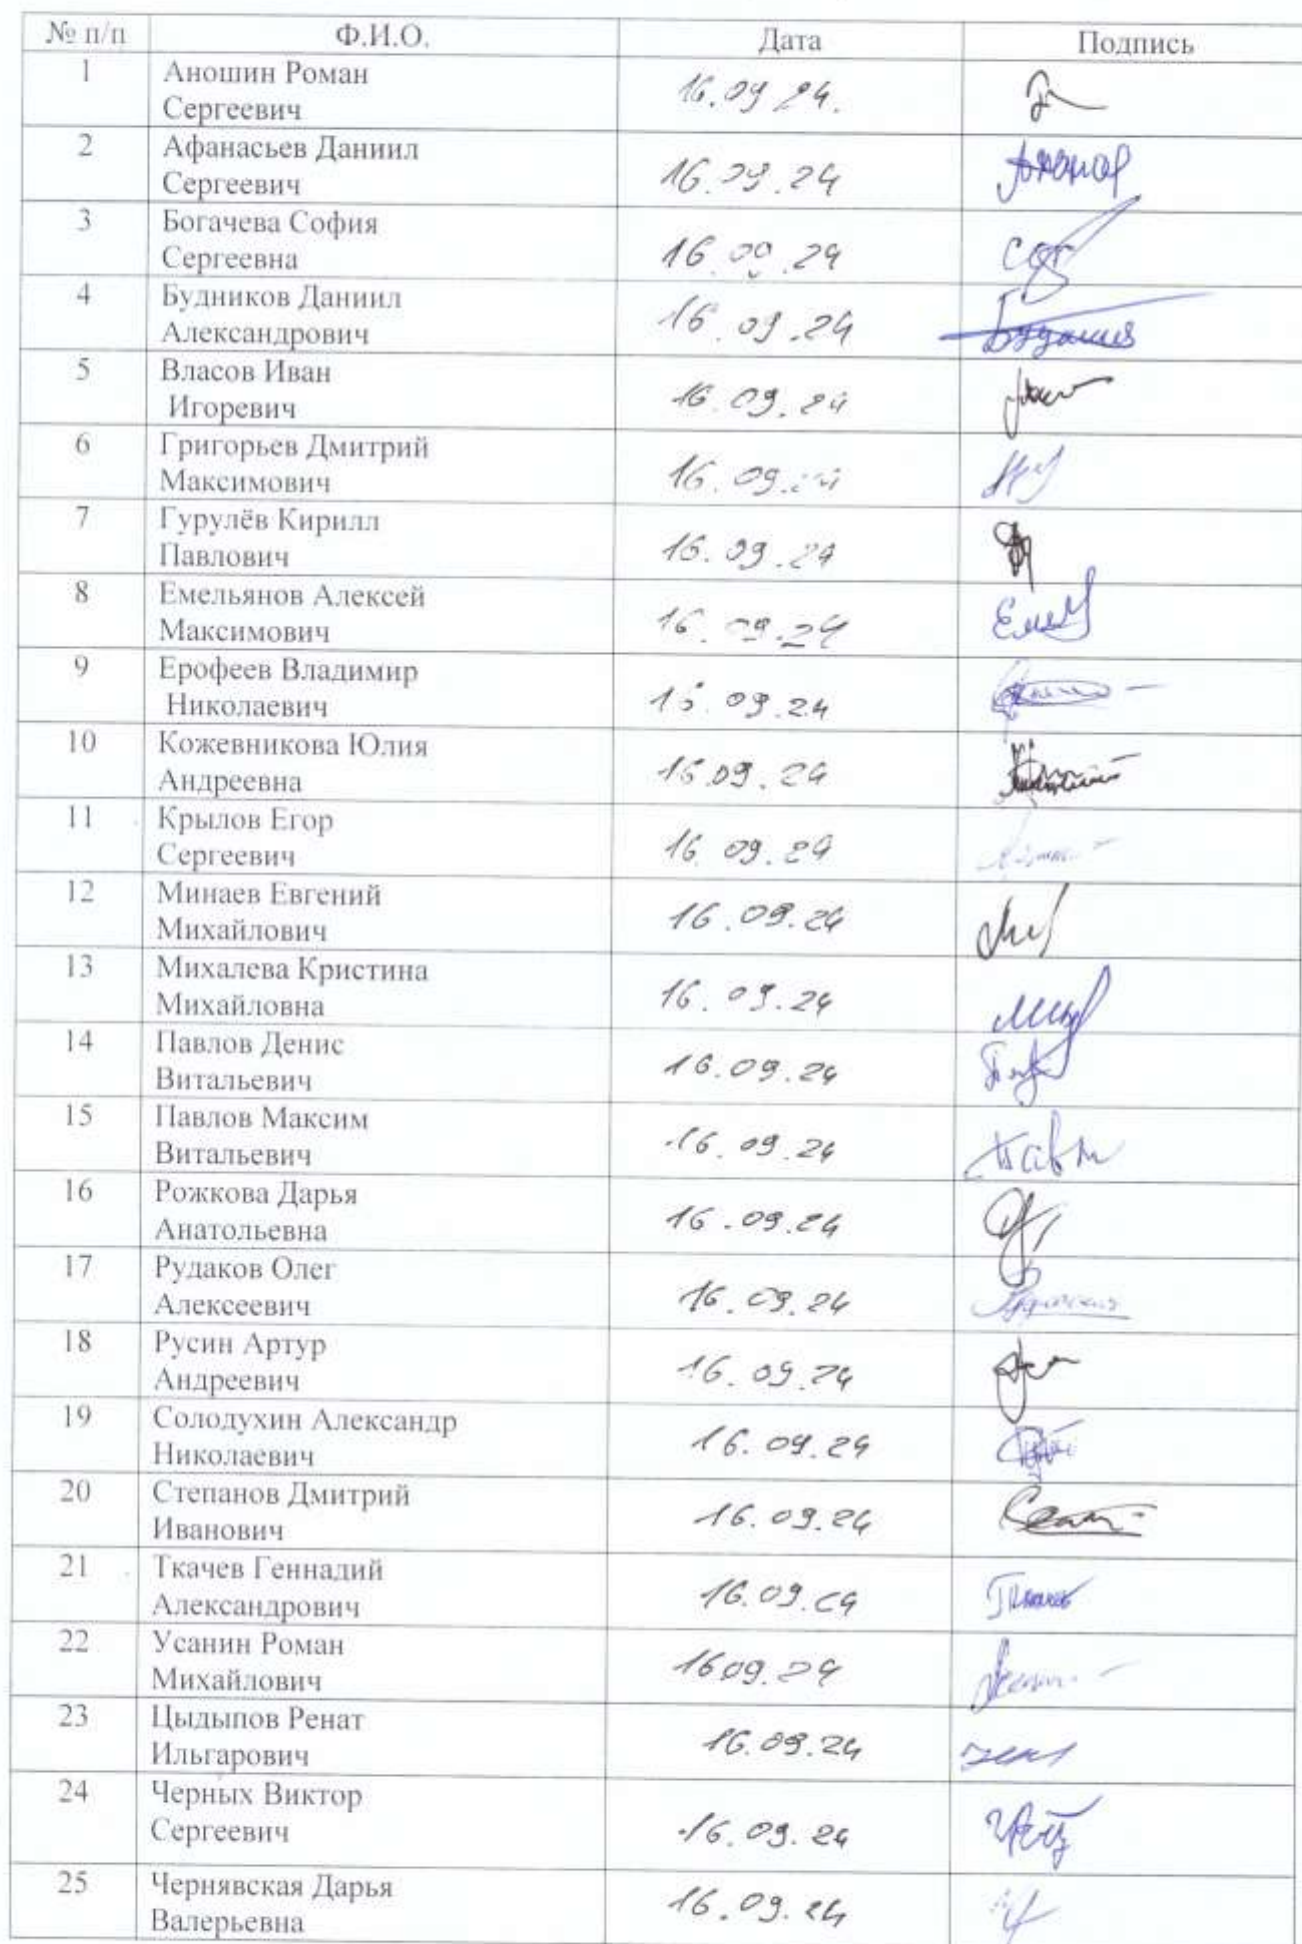 № п/п Ф.И.О. Дата Подпись
1 Аношин Роман
Сергеевич 16.09 24.
2 Афанасьев Даниил
Сергеевич 16.09.24
3 Богачева София
Сергеевна 16.09.24
4 Будников Даниил
Александрович 16.09.24
5 Власов Иван
Игоревич 16.09.24
6 Григорьев Дмитрий
Максимович 16.09.24
7 Гурулёв Кирилл
Павлович 16.09.24
8 Емельянов Алексей
Максимович 16.09.24
9 Ерофеев Владимир
Николаевич 16.09.24
10 Кожевникова Юлия
Андреевна 16.09.24
11 Крылов Егор
Сергеевич 16.09.24
12 Минаев Евгений
Михайлович 16.09.24
13 Михалева Кристина
Михайловна 16.09.24
14 Павлов Денис
Витальевич 16.09.24
15 Павлов Максим
Витальевич 16.09.24
16 Рожкова Дарья
Анатольевна 16.09.24
17 Рудаков Олег
Алексеевич 16.09.24
18 Русин Артур
Андреевич 16.09.24
19 Солодухин Александр
Николаевич 16.09.24
20 Степанов Дмитрий
Иванович 16.09.24
21 Ткачев Геннадий
Александрович 16.09.24
22 Усанин Роман
Михайлович 16 09.24
23 Цыдыпов Ренат
Ильгарович 16.09.24
24 Черных Виктор
Сергеевич 16.09.24
25 Чернявская Дарья
Валерьевна 16.09.24